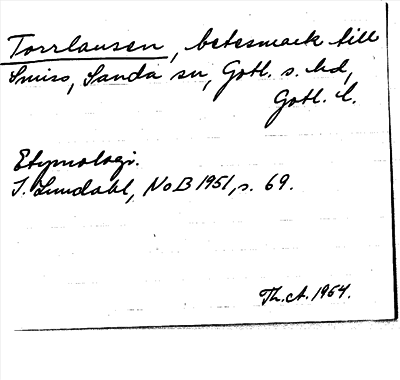 Torrlausen, betesmark till
Smiss, Sanda sn, Gotl. s. hd,
Gotl. l.
Etymologi.
I. Lundahl, NoB 1951, s. 69.
Th. A. 1964.